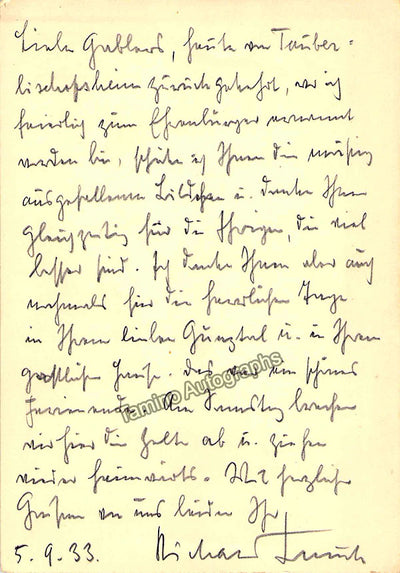 Liebe Gablers, heute von Tauber-
bischofsheim zurückgekehrt, wo ich
feierlich zum Ehrenbürger ernannt
worden bin, schicke ich Ihnen die mässig
ausgefallenen Bildchen u. danke Ihnen
gleichzeitig für die Ihrigen, die viel
besser sind. Ich danke Ihnen aber auch
nochmals für die herrlichen Tage
in Ihrem lieben Gunztal u. in Ihrem
gastlichen Hause. Das war ein schönes
Ferienende. Am Samstag brechen
wir hier die Zelte ab u. ziehen
wieder heimwärts. Mit herzlichen
Grüßen von uns beiden Ihr
5.9.33. Richard Trunk
Tamino Autographs